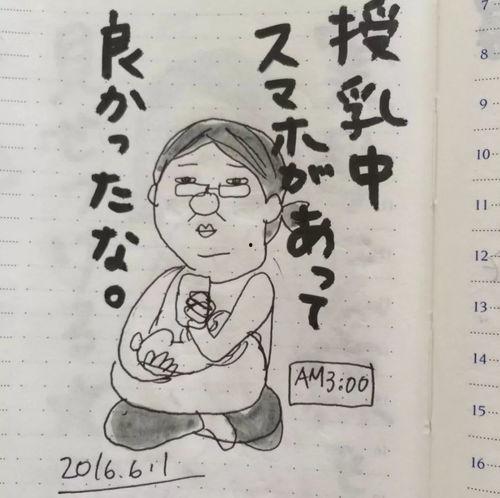 授乳中
スマホがあって
良かったな。
AM3:00
2016.6.1
7
8
9
10
11
12
13
14
15
16